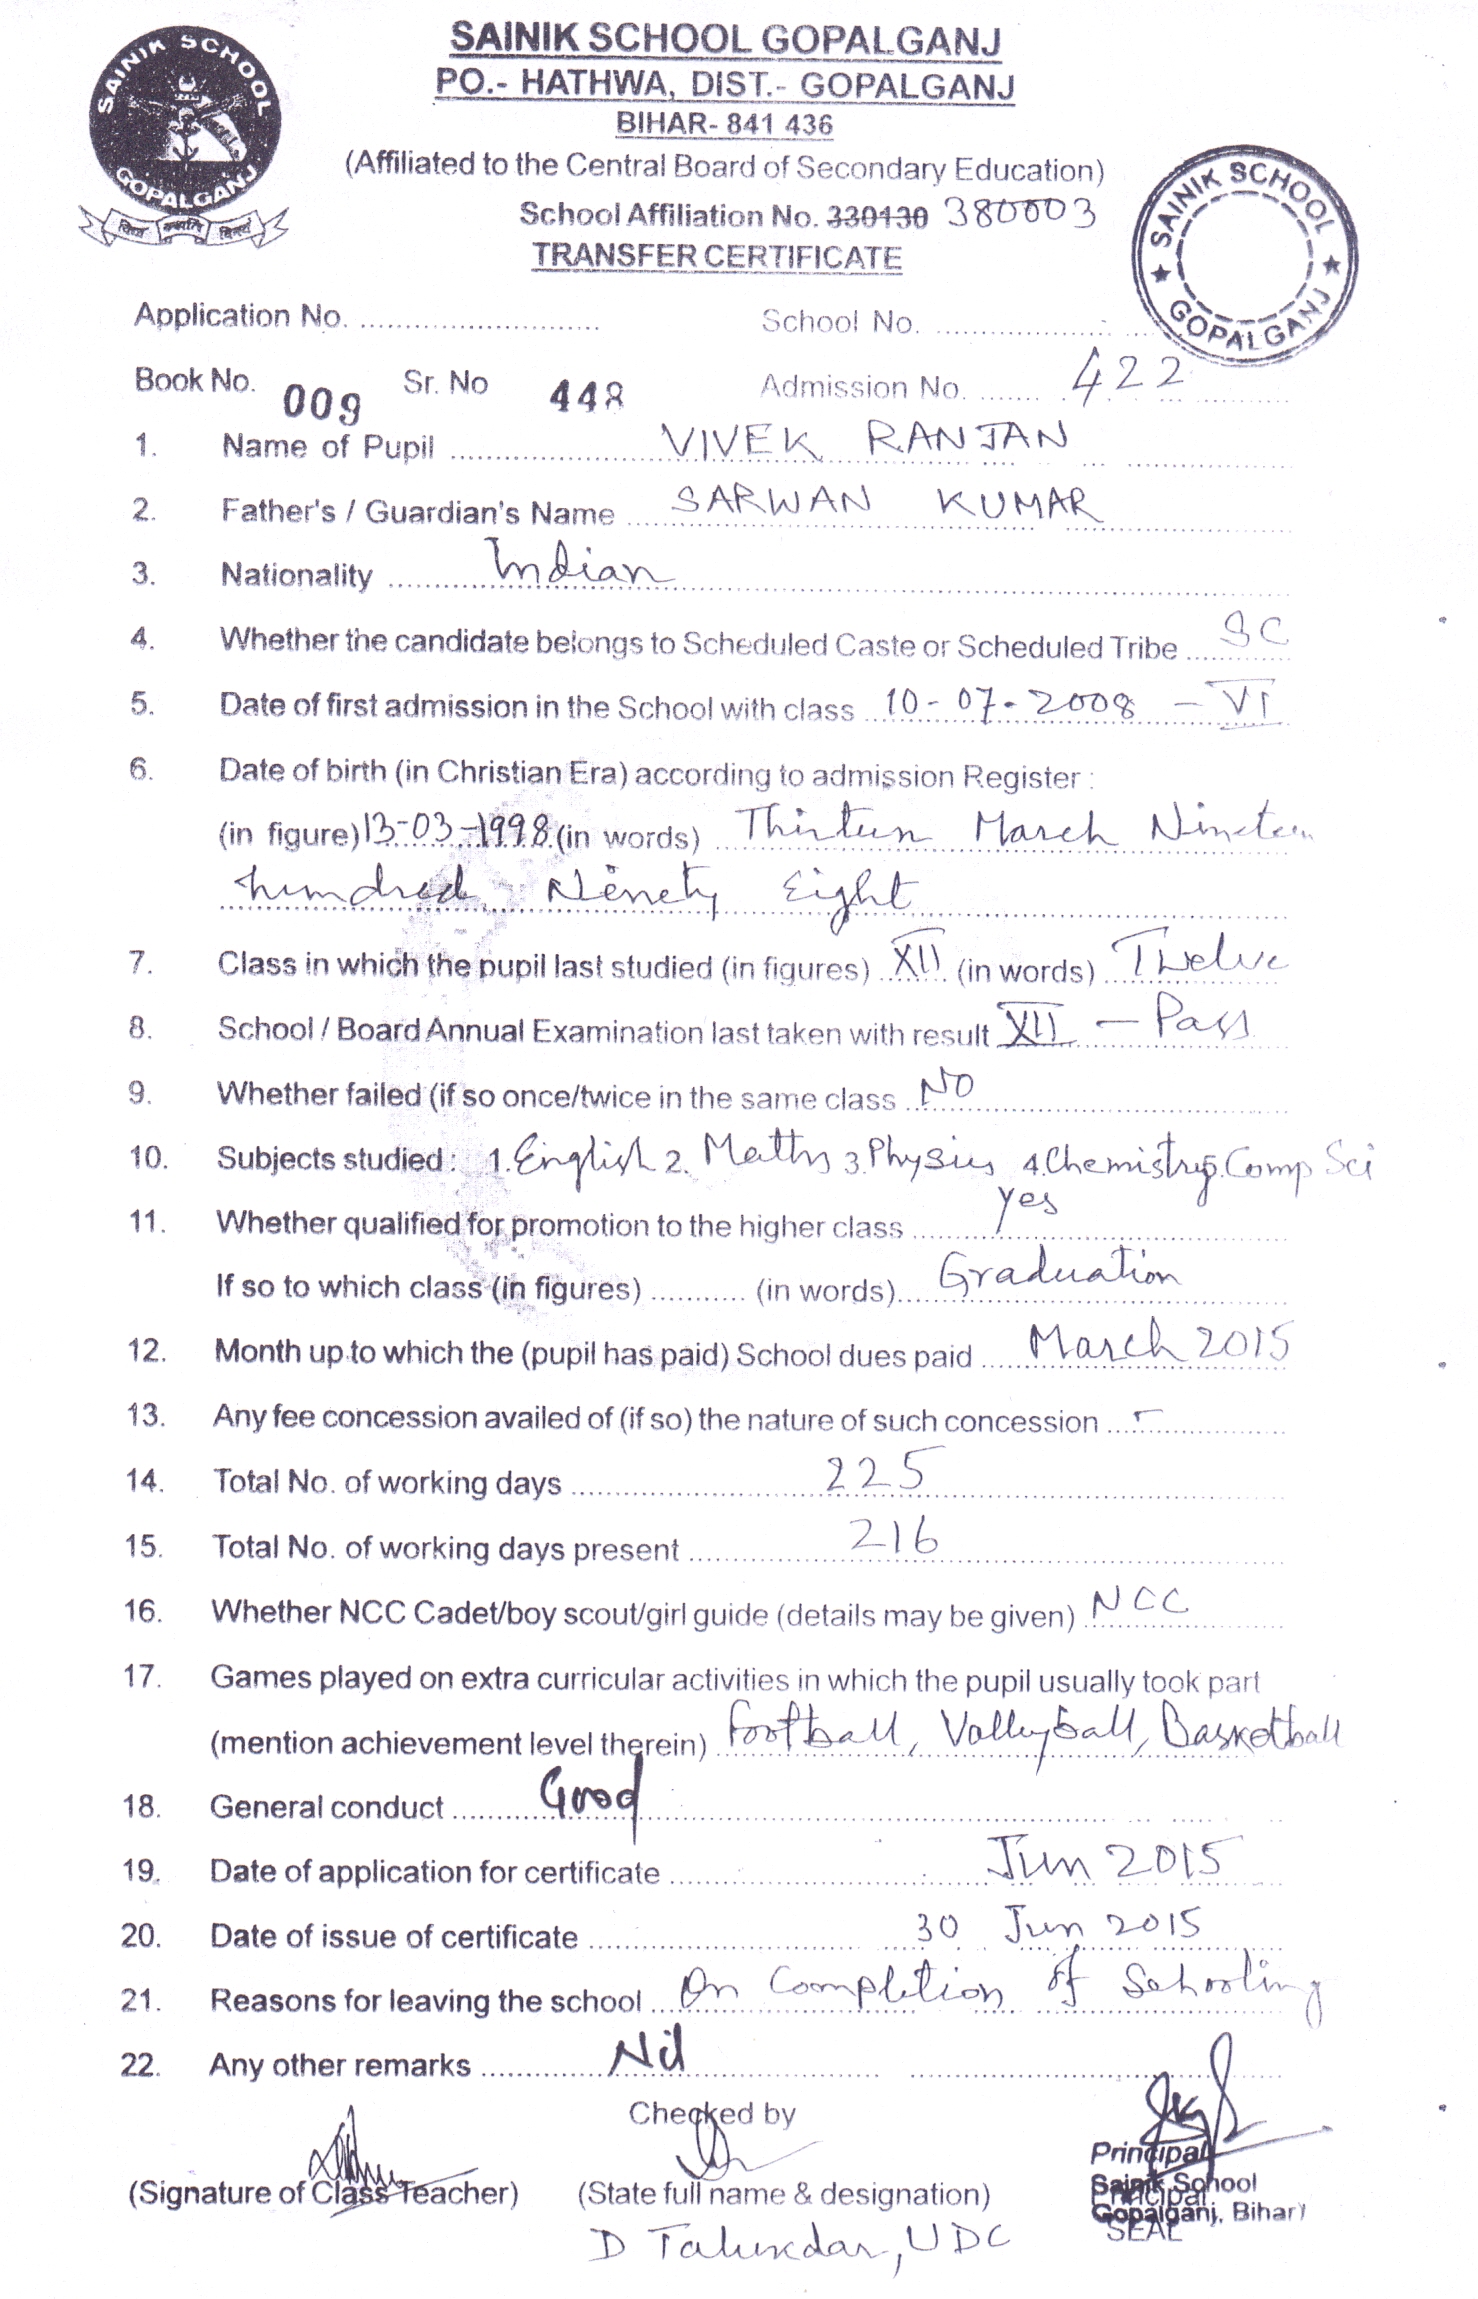 SAINIK SCHOOL
GOPALGANJ
SAINIK SCHOOL GOPALGANJ
PO.- HATHWA, DIST.- GOPALGANJ
BIHAR- 841 436
(Affiliated to the Central Board of Secondary Education)
School Affiliation No. 330130 380003
TRANSFER CERTIFICATE
SAINIK SCHOOL ★ GOPALGANJ ★
Application No. School No.
Book No. 009 Sr. No 448 Admission No. 422
1. Name of Pupil VIVEK RANJAN
2. Father's / Guardian's Name SARWAN KUMAR
3. Nationality Indian
4. Whether the candidate belongs to Scheduled Caste or Scheduled Tribe SC
5. Date of first admission in the School with class 10-07-2008 - VI
6. Date of birth (in Christian Era) according to admission Register :
(in figure) 13-03-1998 (in words) Thirteen March Nineteen
hundred Ninety Eight
7. Class in which the pupil last studied (in figures) XII (in words) Twelve
8. School / Board Annual Examination last taken with result XII - Pass
9. Whether failed (if so once/twice in the same class NO
10. Subjects studied : 1.English 2. Maths 3.Physics 4.Chemistry 5.Comp Sci
11. Whether qualified for promotion to the higher class Yes
If so to which class (in figures) (in words) Graduation
12. Month up to which the (pupil has paid) School dues paid March 2015
13. Any fee concession availed of (if so) the nature of such concession -
14. Total No. of working days 225
15. Total No. of working days present 216
16. Whether NCC Cadet/boy scout/girl guide (details may be given) NCC
17. Games played on extra curricular activities in which the pupil usually took part
(mention achievement level therein) Football, Volleyball, Basketball
18. General conduct Good
19. Date of application for certificate Jun 2015
20. Date of issue of certificate 30 Jun 2015
21. Reasons for leaving the school On Completion of Schooling
22. Any other remarks Nil
Checked by
Principal
(Signature of Class Teacher) (State full name & designation) Sainik School
Principal
Gopalganj, Bihar)
SEAL
D Talukdar, UDC